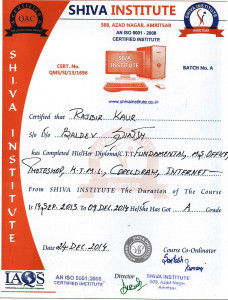 SHIVA INSTITUTE
QAC
588, AZAD NAGAR, AMRITSAR
AN ISO 9001 - 2008
CERTIFIED INSTITUTE
CERT. No.
QMS/SI/13/1698
BATCH No. A
www.shivainstitute.co.in
SHIVA INSTITUTE
Certified that RAJBIR KAUR
S/o D/o BALDEV SINGH
has Completed His/Her Diploma/C.T. FUNDAMENTAL, MS OFFICE,
PHOTOSHOP, H.T.M.L, CORELDRAW, INTERNET
From SHIVA INSTITUTE The Duration of The Course
is 14, SEP. 2013 To 09 DEC. 2014 He/She Has Got A Grade
Date 24 DEC. 2014
Course Co-Ordinator
IAQS
AN ISO 9001:2008
CERTIFIED INSTITUTE
Director
SHIVA INSTITUTE
588, Azad Nagar
Amritsar